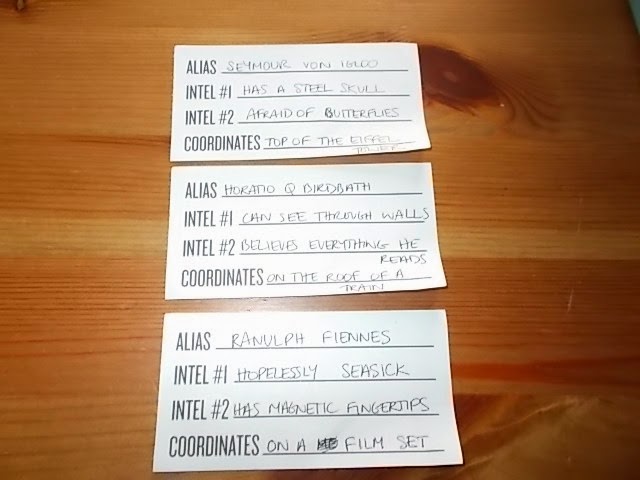 ALIAS SEYMOUR VON IGLOO
INTEL #1 HAS A STEEL SKULL
INTEL #2 AFRAID OF BUTTERFLIES
COORDINATES TOP OF THE EIFFEL
TOWER
ALIAS HORATIO Q BIRDBATH
INTEL #1 CAN SEE THROUGH WALLS
INTEL #2 BELIEVES EVERYTHING HE
READS
COORDINATES ON THE ROOF OF A
TRAIN
ALIAS RANULPH FIENNES
INTEL #1 HOPELESSLY SEASICK
INTEL #2 HAS MAGNETIC FINGERTIPS
COORDINATES ON A FILM SET